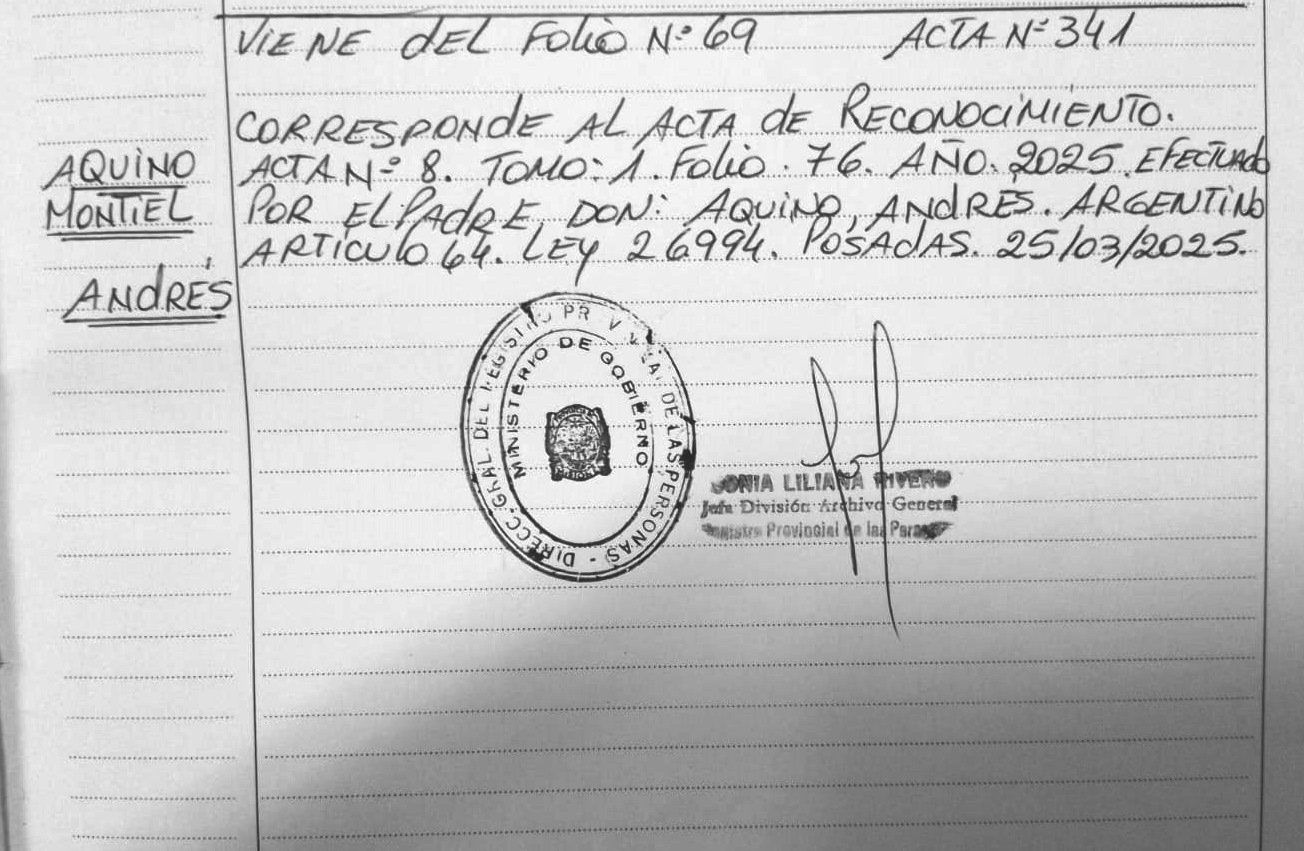 VIENE DEL FOLIO Nº 69 ACTA Nº 341
CORRESPONDE AL ACTA DE RECONOCIMIENTO.
AQUINO
MONTIEL
ANDRÉS
ACTA Nº 8. TOMO: 1. FOLIO. 76. AÑO. 2025. EFECTUADO
POR EL PADRE DON: AQUINO, ANDRES. ARGENTINO
ARTÍCULO 64. LEY 26994. POSADAS. 25/03/2025.
DIRECC. GRAL. DEL REGISTRO DE LAS PERSONAS -
MINISTERIO DE GOBIERNO
SONIA LILIANA RIVERO
Jefa División Archivo General
Registro Provincial de las